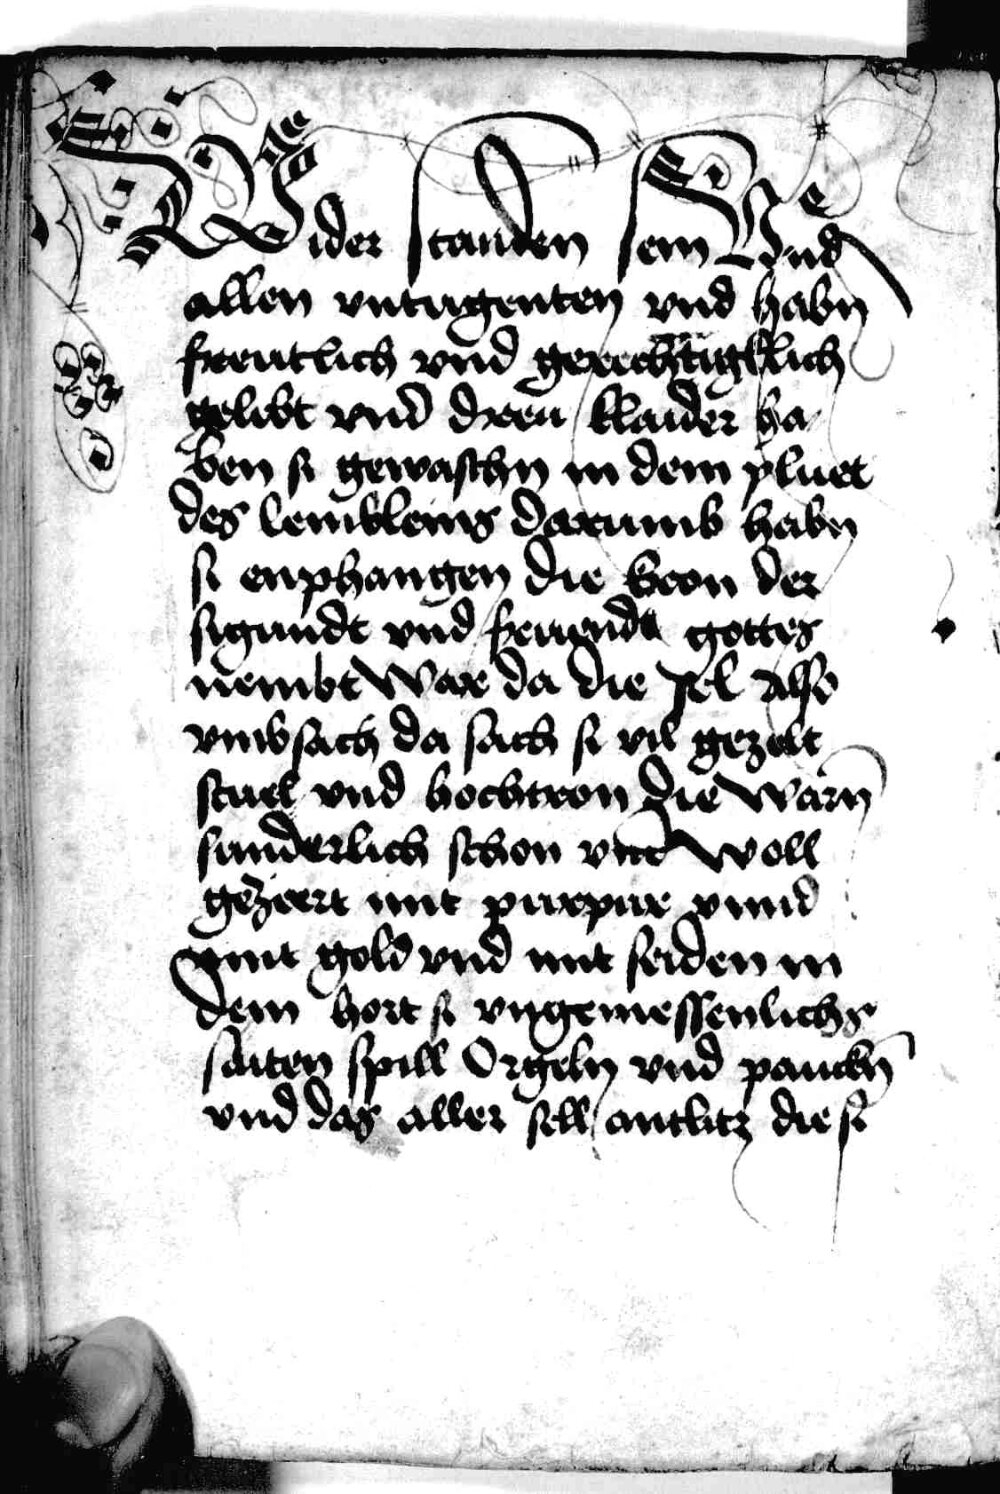 Wider standen sein Und
allen vntugenten vnd habn
freutlich vnd gerechtigklich
gelibt vnd dreu klaider ha
ben si gewaschn in dem pluet
des lembleins darumb habn
si enphangen die kron der
sigundt vnd freundt gottes
nembt war da die sel also
vmbsach da sach si vil gezelt
stuel vnd hochtron die warn
sunderlich schon vnd woll
geziert mit purpur vnnd
mit gold vnd mit seiden in
dem hort si vngemessenlichs
saiten spill Orgeln vnd pauckn
vnd das aller sell antlitz die si